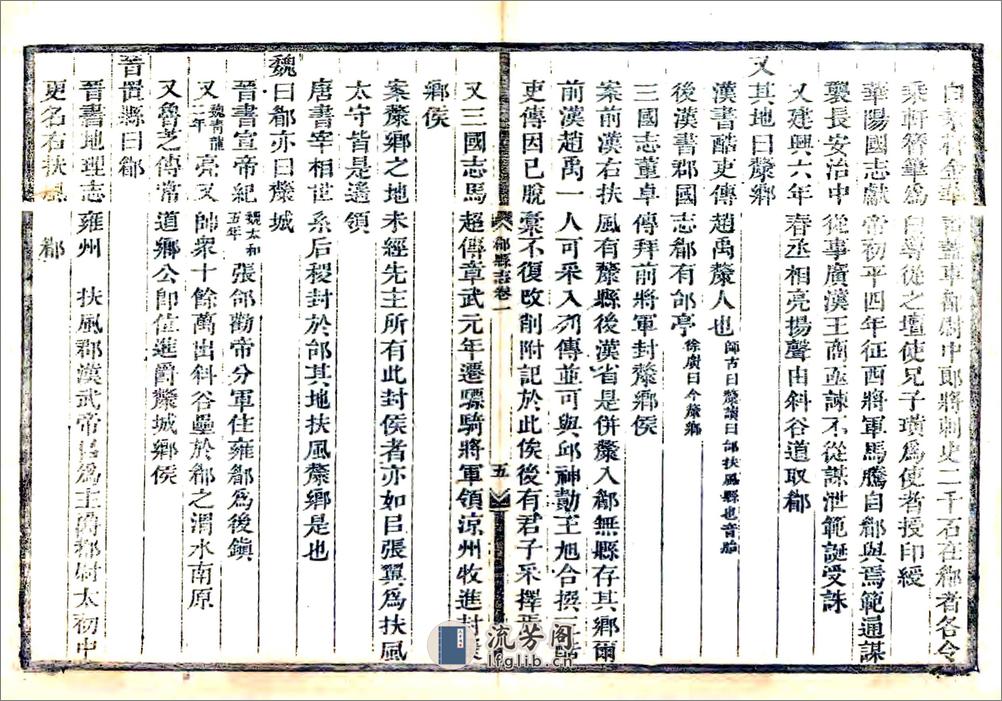 金華
車都尉中郎將刺史二千石在郿者各令
乘軒簪筆爲
自導從之壇使兄子璜爲使者授印綬
華陽國志獻帝初平四年征西將軍馬騰自郿與焉範通謀
襲長安治中從事廣漢王商亟諫不從謀泄範誕受誅
又建興六年春丞相亮揚聲由斜谷道取郿
又其地曰斄鄉
漢書酷吏傳趙禹斄人也師古曰斄讀曰邰扶風縣也音胎
後漢書郡國志郿有邰亭徐廣曰今斄鄉
三國志董卓傳拜前將軍封斄鄉侯
案前漢右扶風有斄縣後漢省是併斄入郿無縣存其鄉爾
前漢趙禹一人可采入列傳並可與邱神勣王旭合撰
吏傳因已脫稾不復改削附記於此俟後有君子采擇焉
郿縣志卷一 五
又三國志馬超傳章武元年遷驃騎將軍領涼州牧進封
鄉侯
案斄鄉之地未經先主所有此封侯者亦如㠯張翼爲扶風
太守皆是遙領
唐書宰相世系后稷封於邰其地扶風斄鄉是也
魏曰郿亦曰斄城
晉書宣帝紀魏太和五年張郃勸帝分軍住雍郿爲後鎮
又魏青龍二年亮又帥衆十餘萬出斜谷壘於郿之渭水南原
又魯芝傳常道鄉公即位進爵斄城鄉侯
晉置縣曰郿
晉書地理志雍州 扶風郡漢武帝㠯爲主爵都尉太初中
更名右扶風 郿
流芳阁
lfglib.cn